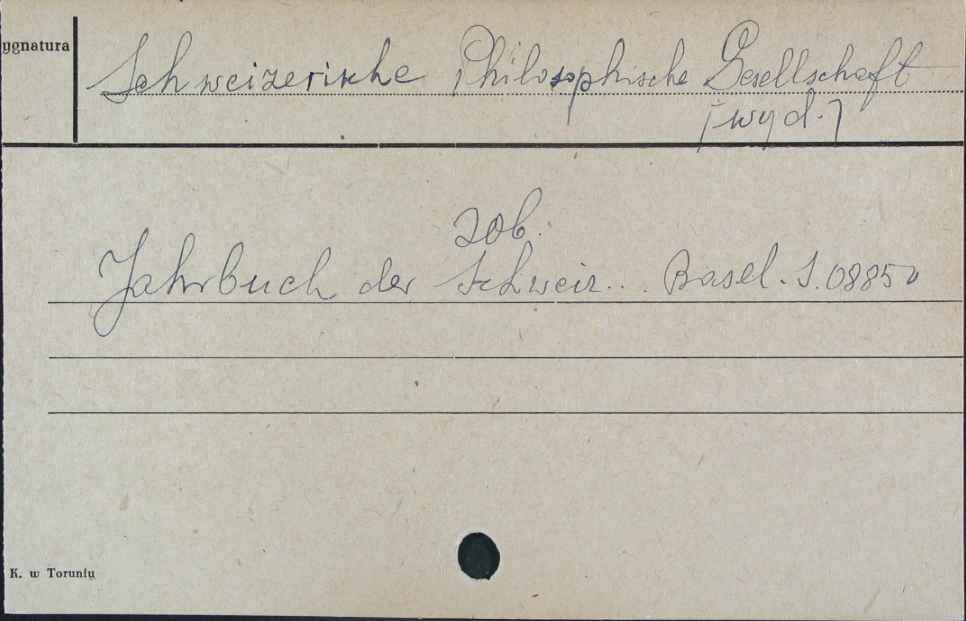 ygnatura
Schweizerische Philosophische Gesellschaft
[wyd.]
zob.
Jahrbuch der Schweiz... Basel. S.08850
K. w Toruniu